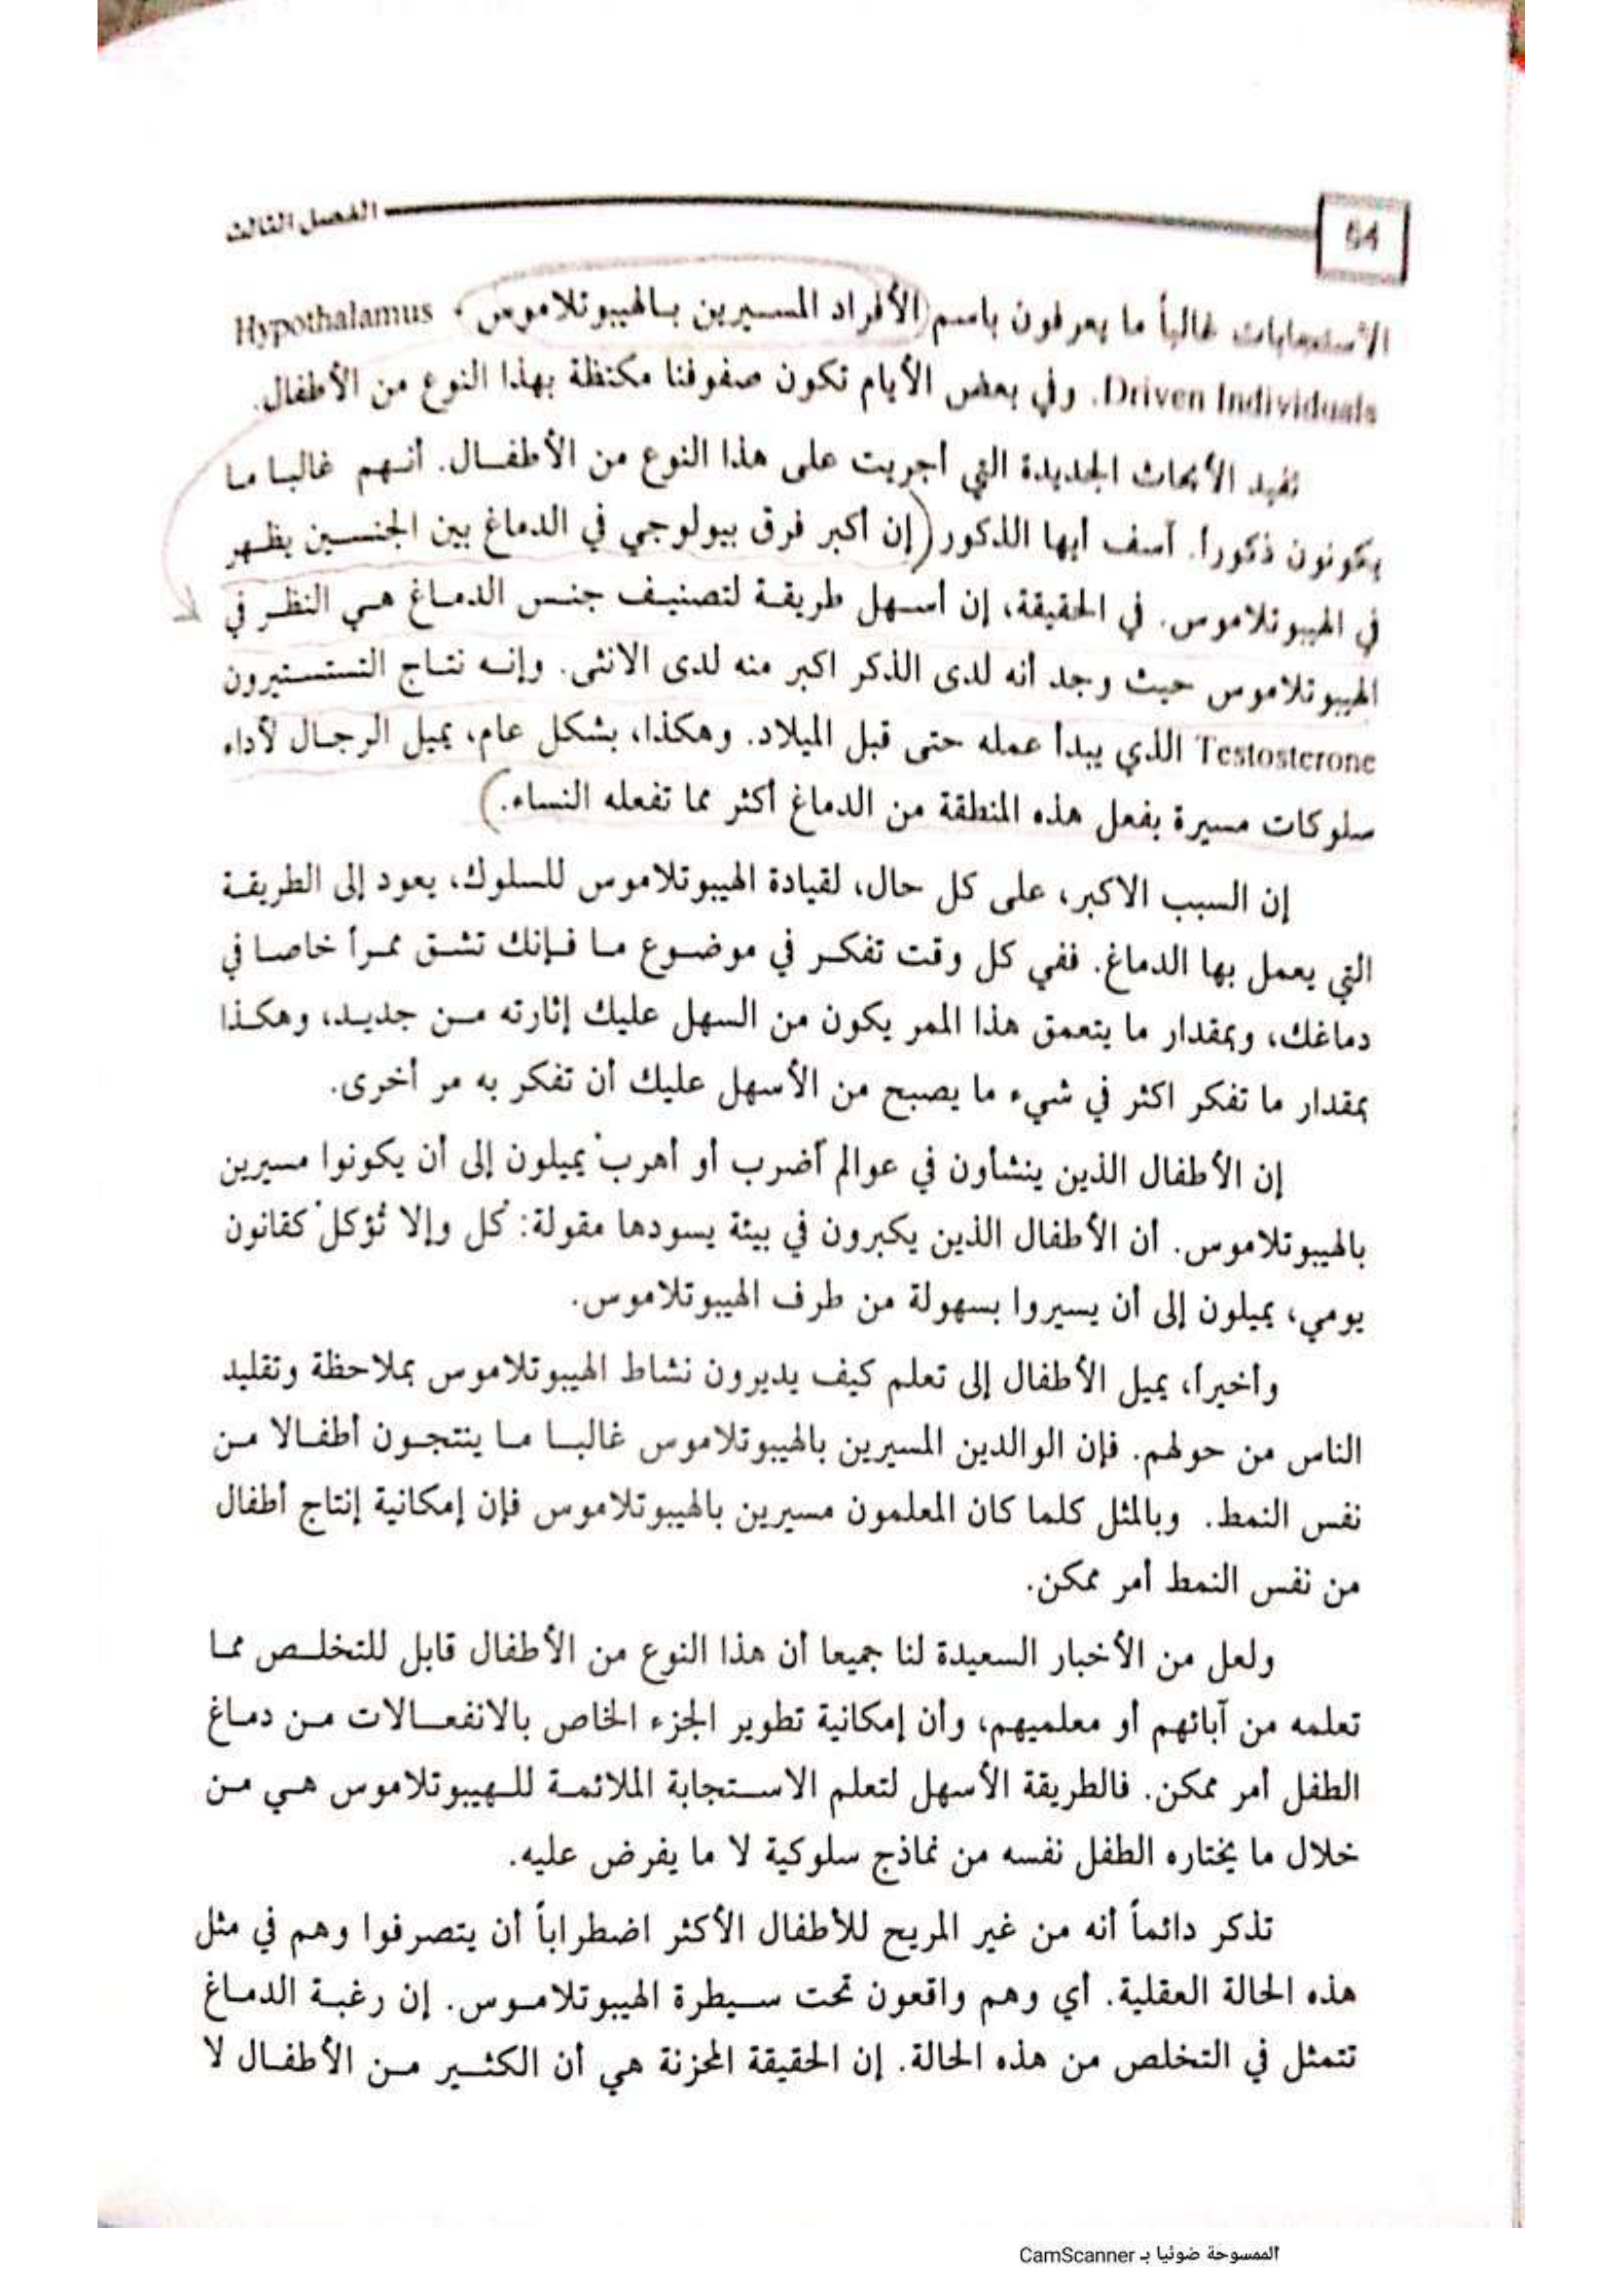 الفصل الثالث
64
الاستجابات غالباً ما يعرفون باسم (الأفراد المسيرين بالهيبوتلاموس، Hypothalamus
Driven Individuals. وفي بعض الأيام تكون صفوفنا مكتظة بهذا النوع من الأطفال.
تفيد الأبحاث الجديدة التي أجريت على هذا النوع من الأطفال. أنهم غالبا ما
يكونون ذكوراً. آسف أيها الذكور (إن أكبر فرق بيولوجي في الدماغ بين الجنسين يظهر
في الهيبوتلاموس. في الحقيقة، إن أسهل طريقة لتصنيف جنس الدماغ هي النظر في
الهيبوتلاموس حيث وجد أنه لدى الذكر اكبر منه لدى الانثى. وإنه نتاج التستستيرون
Testosterone الذي يبدأ عمله حتى قبل الميلاد. وهكذا، بشكل عام، يميل الرجال لأداء
سلوكات مسيرة بفعل هذه المنطقة من الدماغ أكثر مما تفعله النساء.)
إن السبب الاكبر، على كل حال، لقيادة الهيبوتلاموس للسلوك، يعود إلى الطريقة
التي يعمل بها الدماغ. ففي كل وقت تفكر في موضوع ما فإنك تشق ممراً خاصا في
دماغك، وبمقدار ما يتعمق هذا الممر يكون من السهل عليك إثارته من جديد، وهكذا
بمقدار ما تفكر اكثر في شيء ما يصبح من الأسهل عليك أن تفكر به مر أخرى.
إن الأطفال الذين ينشأون في عوالم "أضرب أو أهرب" يميلون إلى أن يكونوا مسيرين
بالهيبوتلاموس. أن الأطفال الذين يكبرون في بيئة يسودها مقولة: "كل وإلا تُؤكل" كقانون
يومي، يميلون إلى أن يسيروا بسهولة من طرف الهيبوتلاموس.
وأخيراً، يميل الأطفال إلى تعلم كيف يديرون نشاط الهيبوتلاموس بملاحظة وتقليد
الناس من حولهم. فإن الوالدين المسيرين بالهيبوتلاموس غالبا ما ينتجون أطفالا من
نفس النمط. وبالمثل كلما كان المعلمون مسيرين بالهيبوتلاموس فإن إمكانية إنتاج أطفال
من نفس النمط أمر ممكن.
ولعل من الأخبار السعيدة لنا جميعا أن هذا النوع من الأطفال قابل للتخلص مما
تعلمه من آبائهم أو معلميهم، وأن إمكانية تطوير الجزء الخاص بالانفعالات من دماغ
الطفل أمر ممكن. فالطريقة الأسهل لتعلم الاستجابة الملائمة للهيبوتلاموس هي من
خلال ما يختاره الطفل نفسه من نماذج سلوكية لا ما يفرض عليه.
تذكر دائماً أنه من غير المريح للأطفال الأكثر اضطراباً أن يتصرفوا وهم في مثل
هذه الحالة العقلية. أي وهم واقعون تحت سيطرة الهيبوتلاموس. إن رغبة الدماغ
تتمثل في التخلص من هذه الحالة. إن الحقيقة المحزنة هي أن الكثير من الأطفال لا
الممسوحة ضوئيا بـ CamScanner